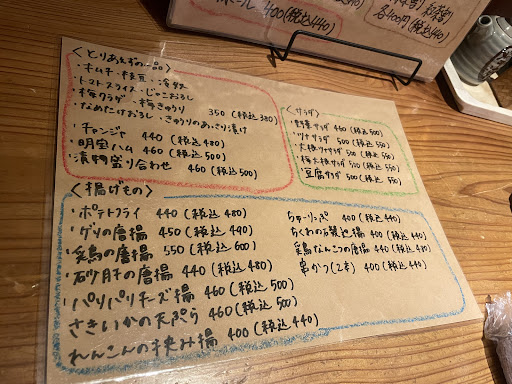 400(税込440)
各400円(税込440)
<とりあえずの一品>
・キムチ・枝豆・冷奴
・トマトスライス・じゃこおろし
・梅クラゲ・梅きゅうり
・なめたけおろし・きゅうりのあっさり漬け
350(税込380)
・チャンジャ 440(税込480)
・明宝ハム 460(税込500)
・漬物盛り合わせ 460(税込500)
<サラダ>
・野菜サラダ 460(税込500)
・ツナサラダ 500(税込550)
・大根サラダ 500(税込550)
・梅大根サラダ 500(税込550)
・豆腐サラダ 500(税込550)
<揚げもの>
・ポテトフライ 440(税込480)
・ゲソの唐揚 450(税込490)
・若鳥の唐揚 550(税込600)
・砂肝の唐揚 440(税込480)
・パリパリチーズ揚 460(税込500)
・さきいかの天ぷら 460(税込500)
・れんこんの挟み揚 400(税込440)
400(税込440)
ちくわの石製揚 400(税込440)
若鳥なんこつの唐揚 400(税込440)
串かつ(2本) 400(税込440)